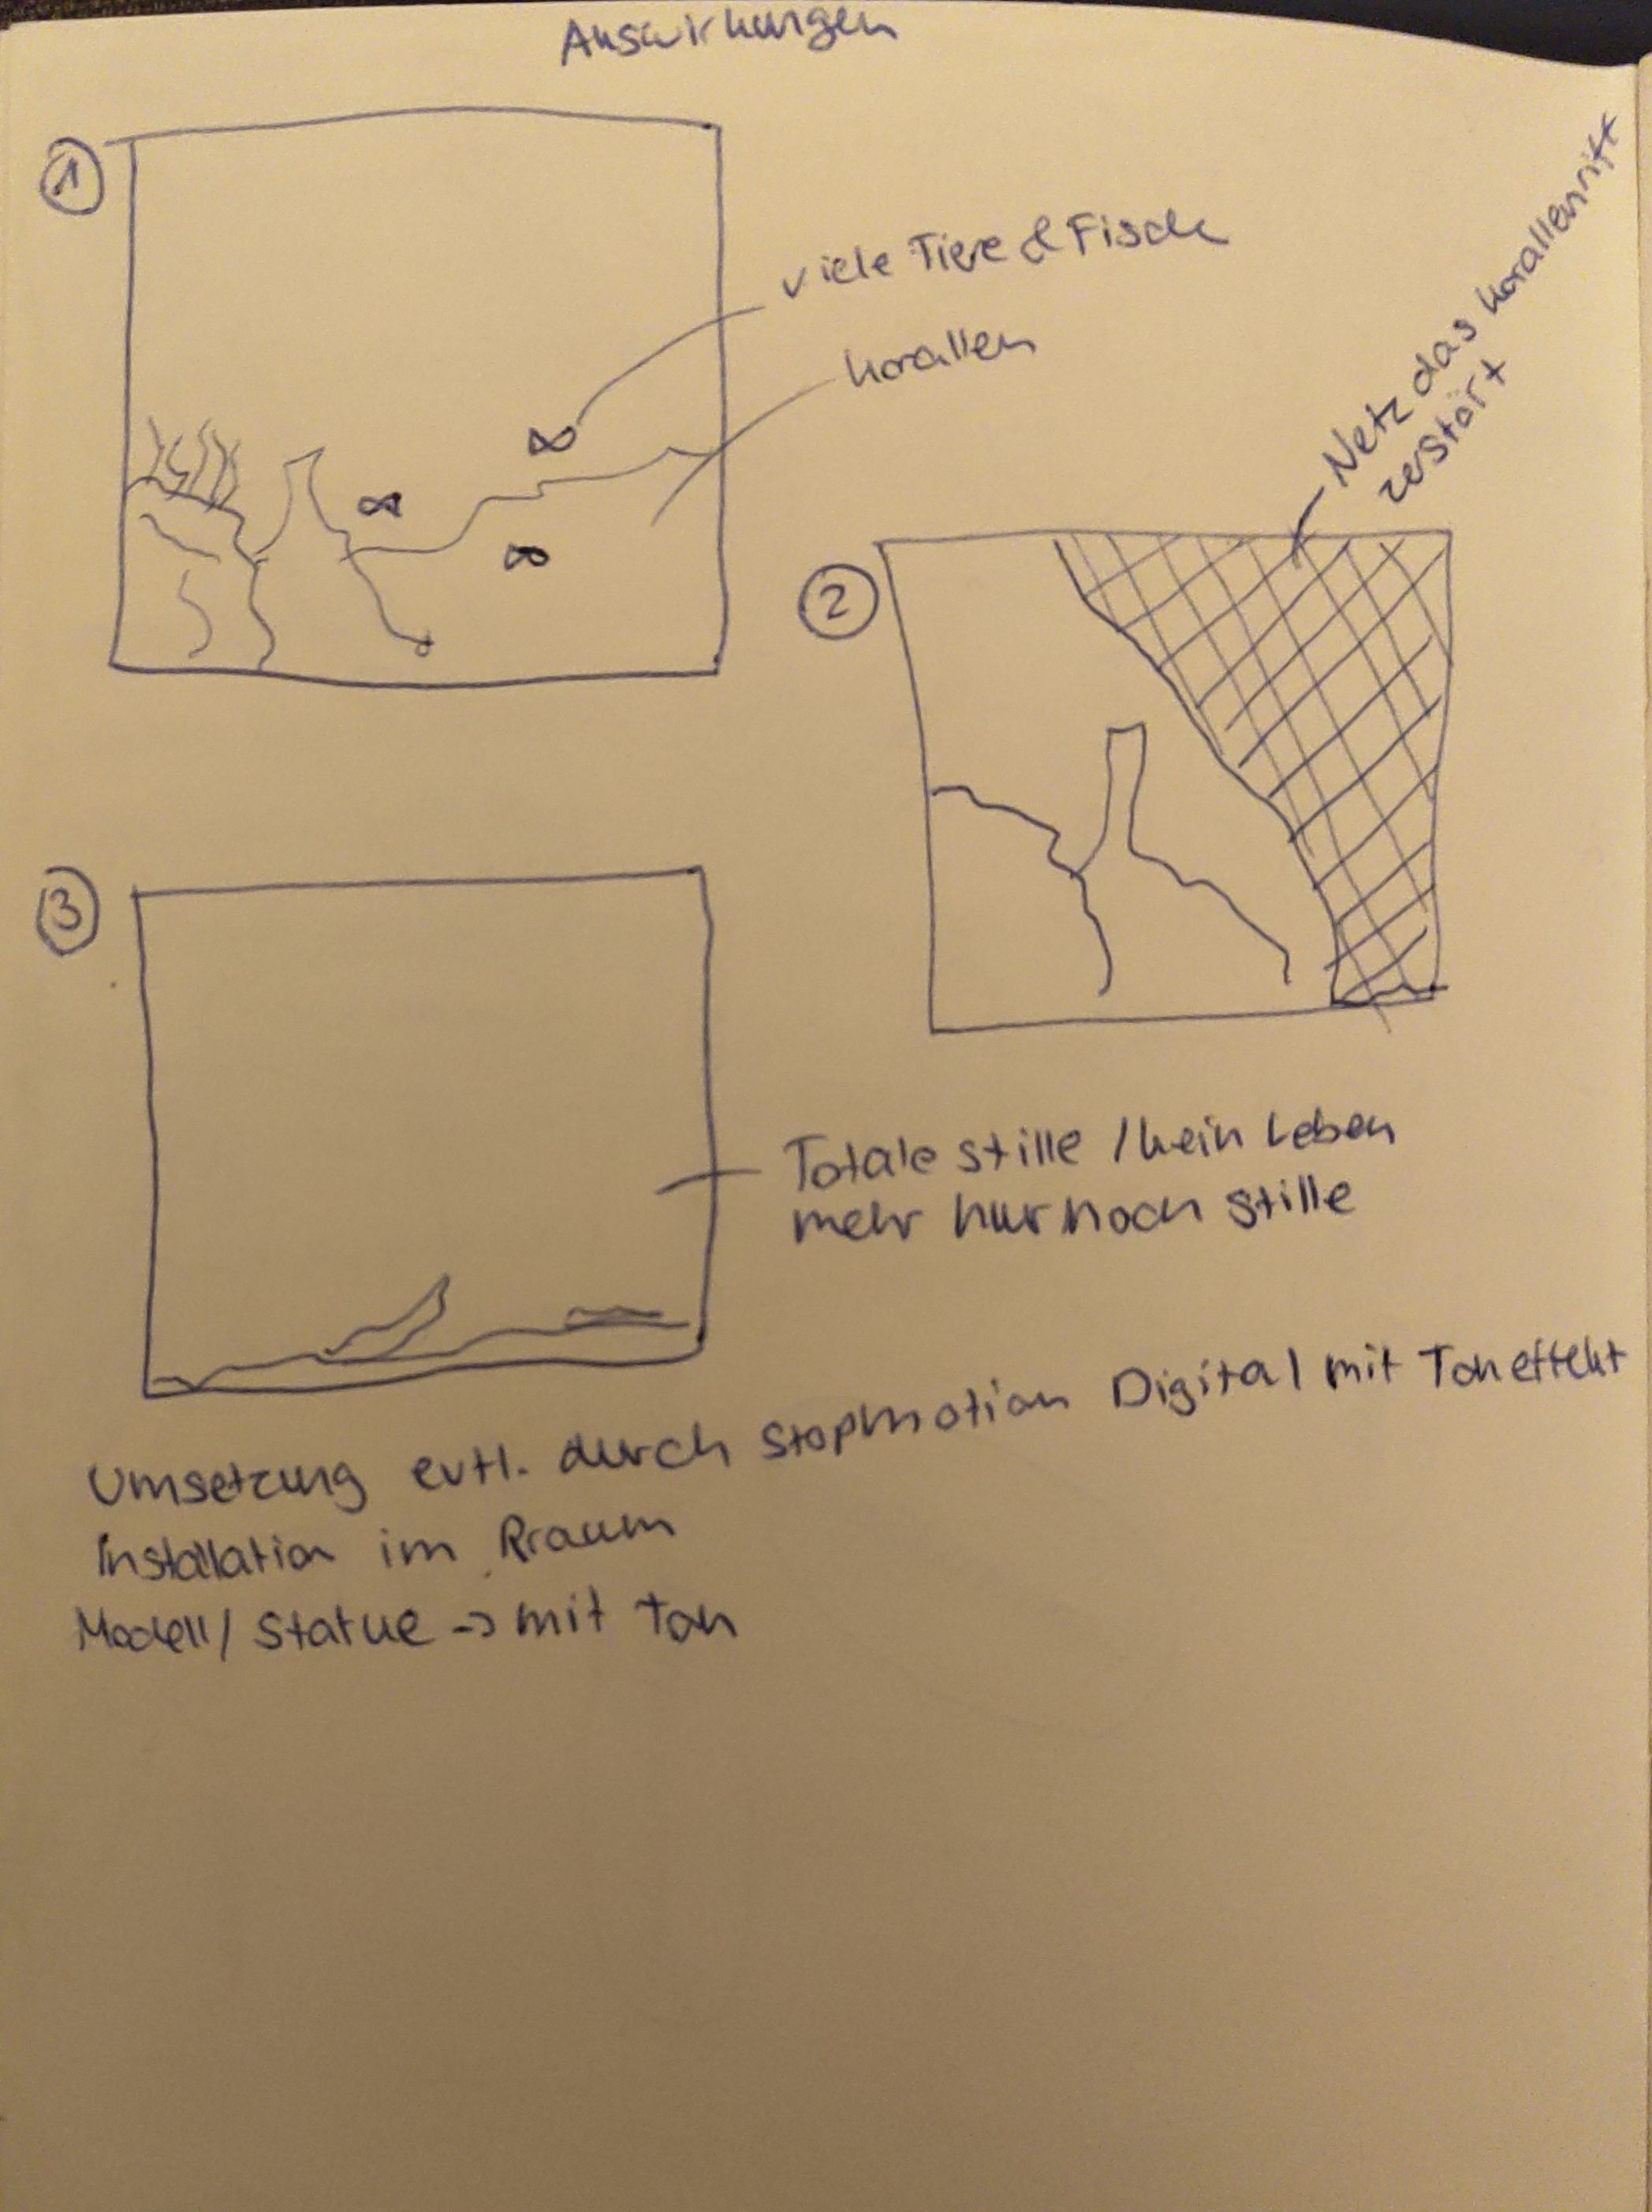 Auswirkungen
1
viele Tiere & Fische
Korallen
Netz das Korallenriff
zerstört
2
3
Totale stille / kein Leben
mehr nur noch stille
Umsetzung evtl. durch Stopmotion Digital mit Toneffekt
Installation im Rraum
Modell / Statue -> mit Ton